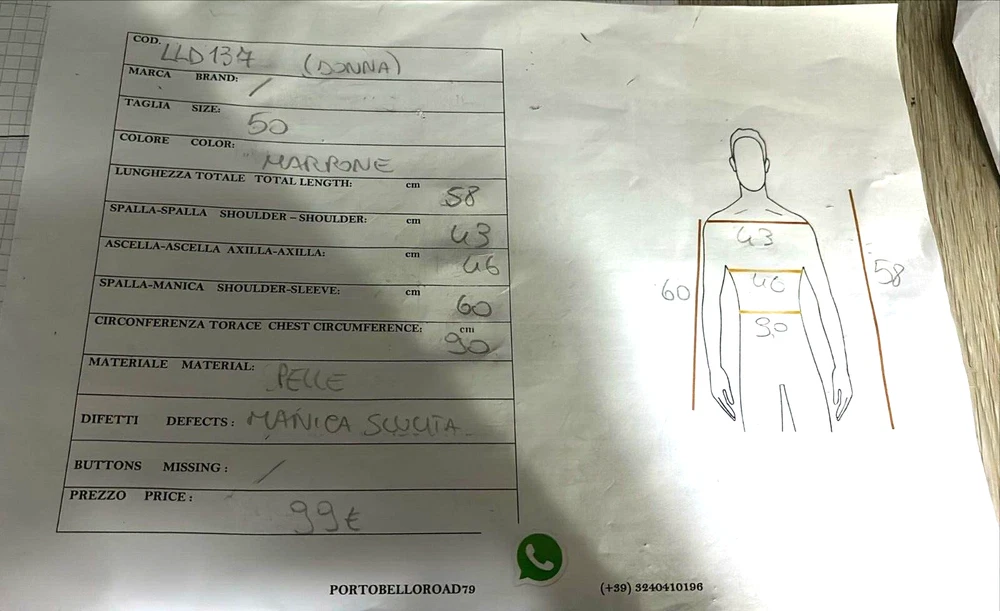 COD. LLD137 (DONNA)
MARCA BRAND: /
TAGLIA SIZE: 50
COLORE COLOR: MARRONE
LUNGHEZZA TOTALE TOTAL LENGTH: cm 58
SPALLA-SPALLA SHOULDER – SHOULDER: cm 43
ASCELLA-ASCELLA AXILLA-AXILLA: cm 46
SPALLA-MANICA SHOULDER-SLEEVE: cm 60
CIRCONFERENZA TORACE CHEST CIRCUMFERENCE: cm 90
MATERIALE MATERIAL: PELLE
DIFETTI DEFECTS: MANICA SCUCITA
BUTTONS MISSING: /
PREZZO PRICE: 99€
43
46
90
60
58
PORTOBELLOROAD79
(+39) 3240410196